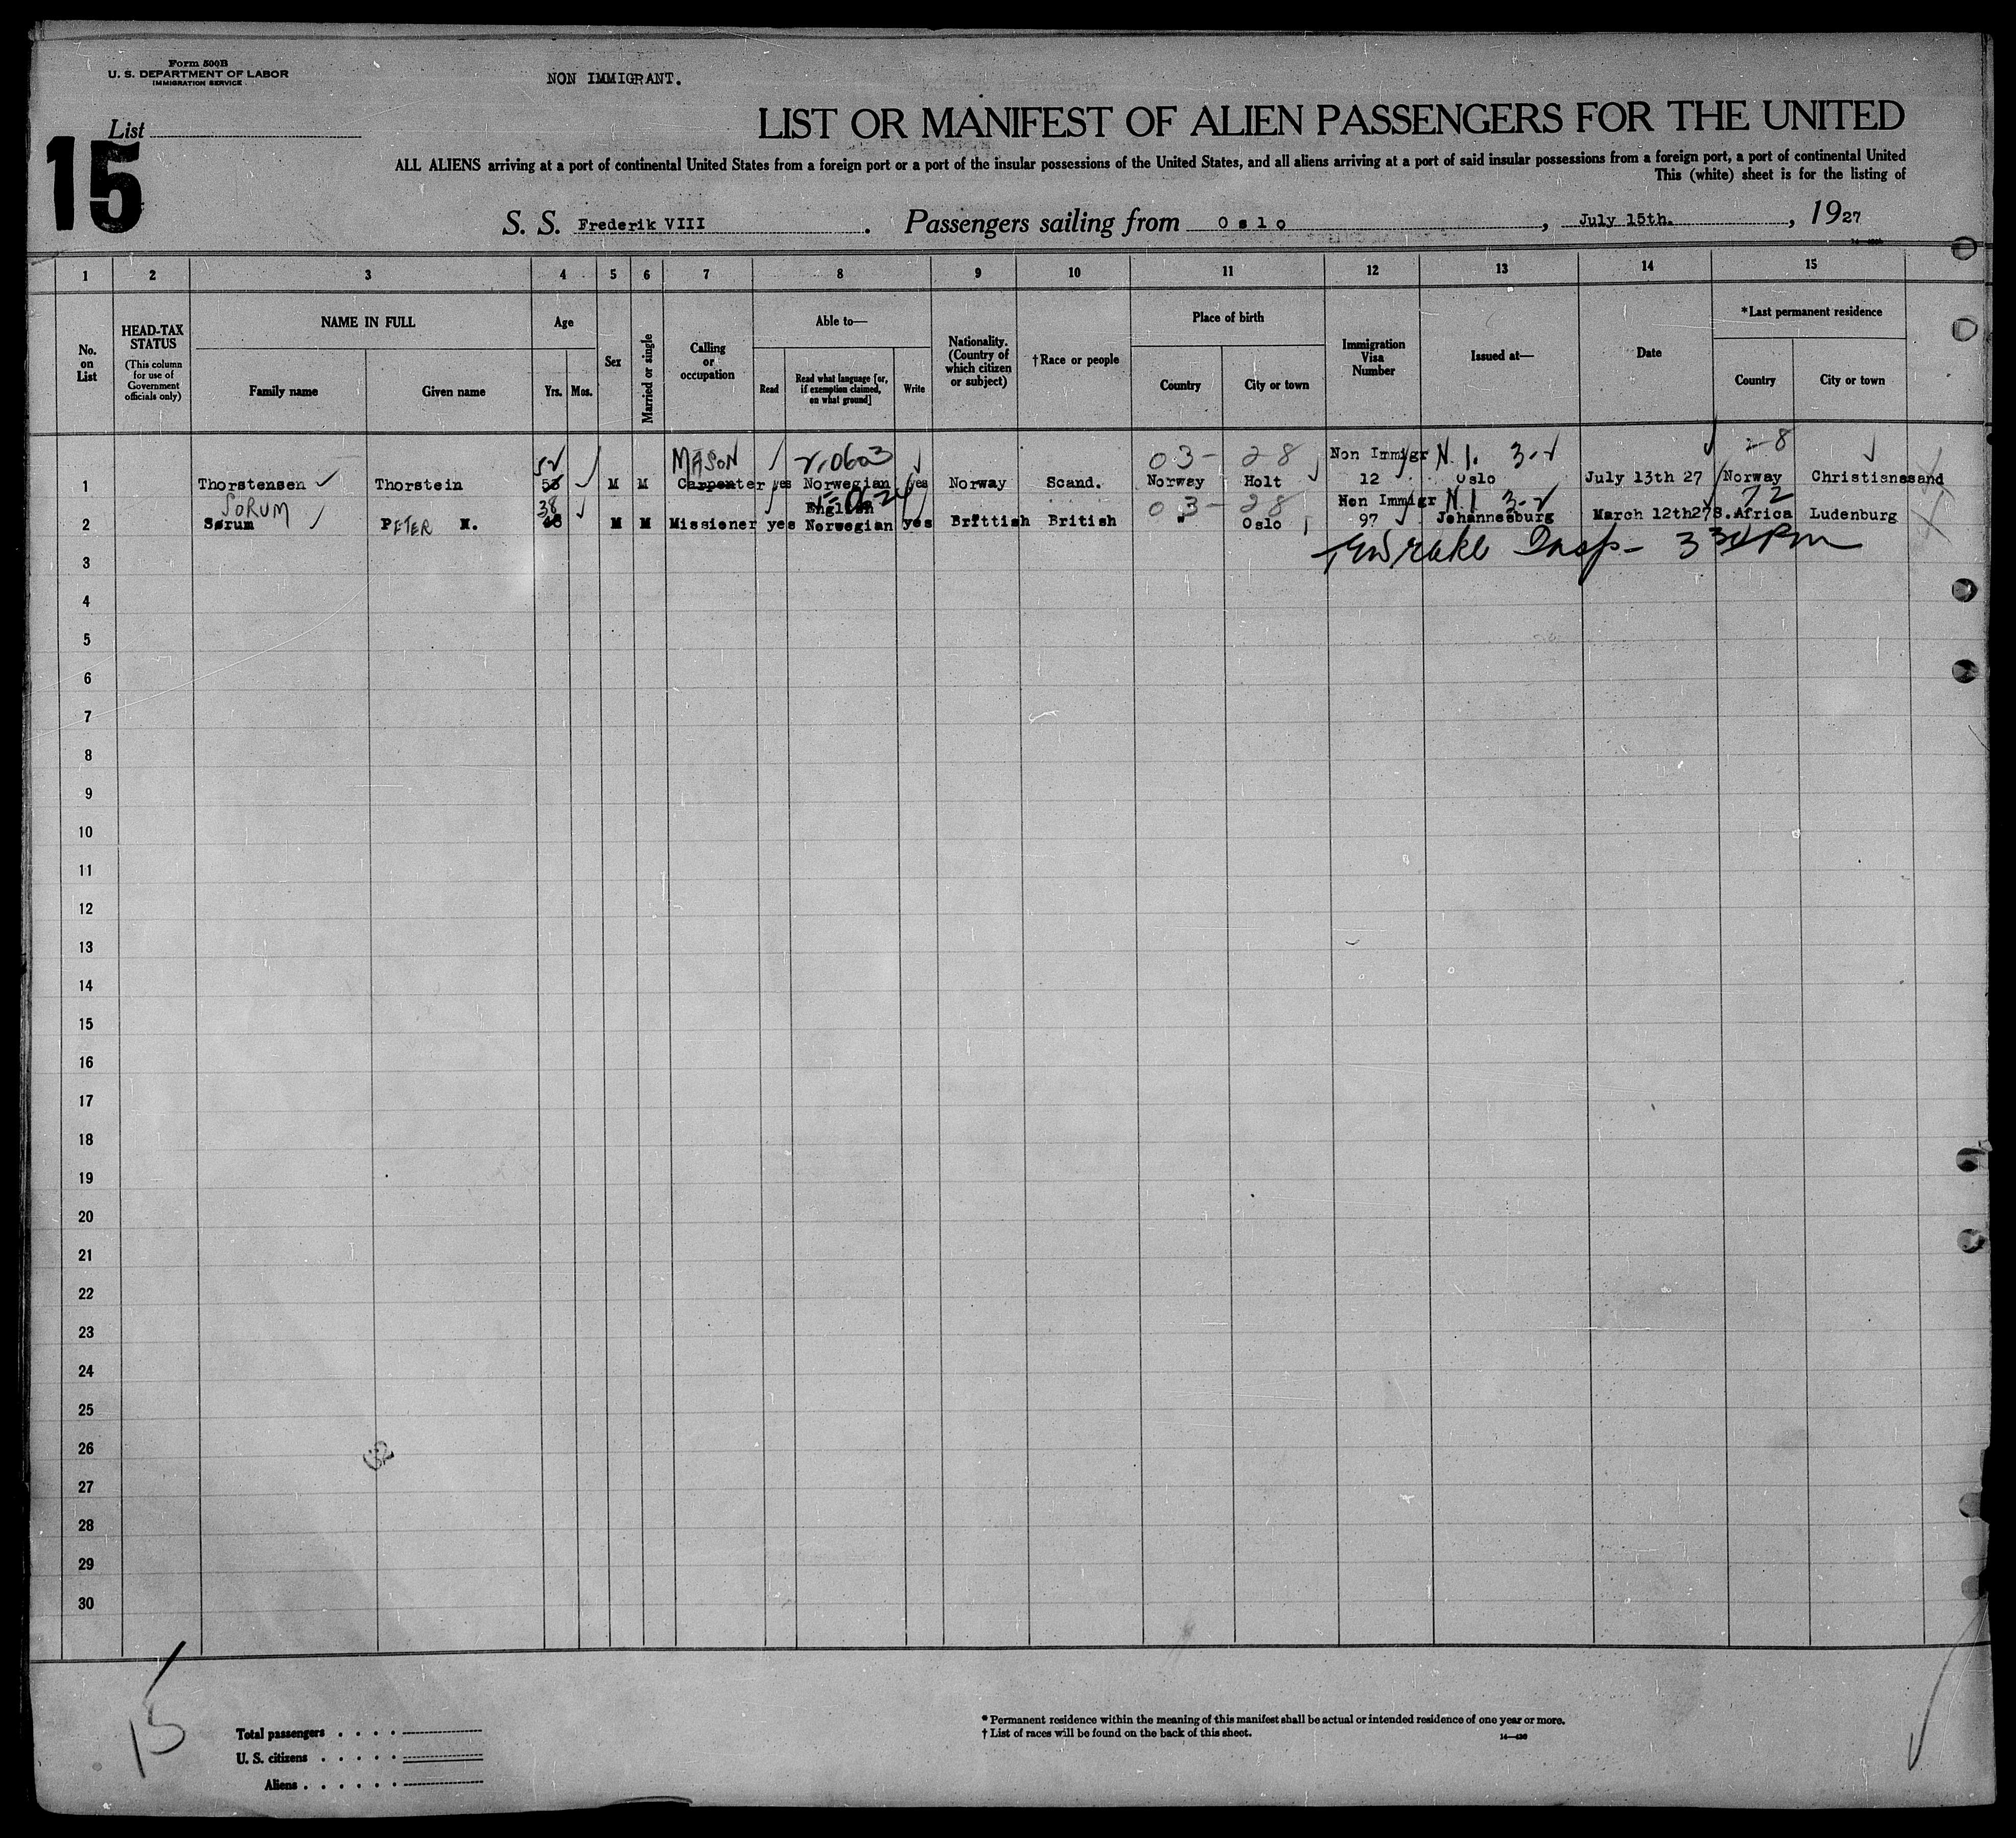 Form 500B
U. S. DEPARTMENT OF LABOR
IMMIGRATION SERVICE
NON IMMIGRANT.
List
15
LIST OR MANIFEST OF ALIEN PASSENGERS FOR THE UNITED
ALL ALIENS arriving at a port of continental United States from a foreign port or a port of the insular possessions of the United States, and all aliens arriving at a port of said insular possessions from a foreign port, a port of continental United
This (white) sheet is for the listing of
S. S. Frederik VIII . Passengers sailing from Oslo , July 15th. , 1927
1 2 3 4 5 6 7 8 9 10 11 12 13 14 15
No. on List
HEAD-TAX STATUS
(This column for use of Government officials only)
NAME IN FULL
Family name
Given name
Age
Yrs. Mos.
Sex
Married or single
Calling or occupation
Able to—
Read
Read what language [or, if exemption claimed, on what ground]
Write
Nationality. (Country of which citizen or subject)
†Race or people
Place of birth
Country
City or town
Immigration Visa Number
Issued at—
Date
*Last permanent residence
Country
City or town
MASON 03- 28 Non Immigr N.I. 3-2 28
1 Thorstensen Thorstein M M Carpenter yes Norwegian yes Norway Scand. Norway Holt 12 Oslo July 13th 27 Norway Christianssand
SORUM 38 English 03- 28 Non Immigr N.I 3-2 72
2 Sørum PETER N. M M Missioner yes Norwegian yes Brittish British " Oslo 97 Johannesburg March 12th27 S.Africa Ludenburg
3
4
5
6
7
8
9
10
11
12
13
14
15
16
17
18
19
20
21
22
23
24
25
26
27
28
29
30
15
Total passengers
U. S. citizens
Aliens
* Permanent residence within the meaning of this manifest shall be actual or intended residence of one year or more.
† List of races will be found on the back of this sheet.